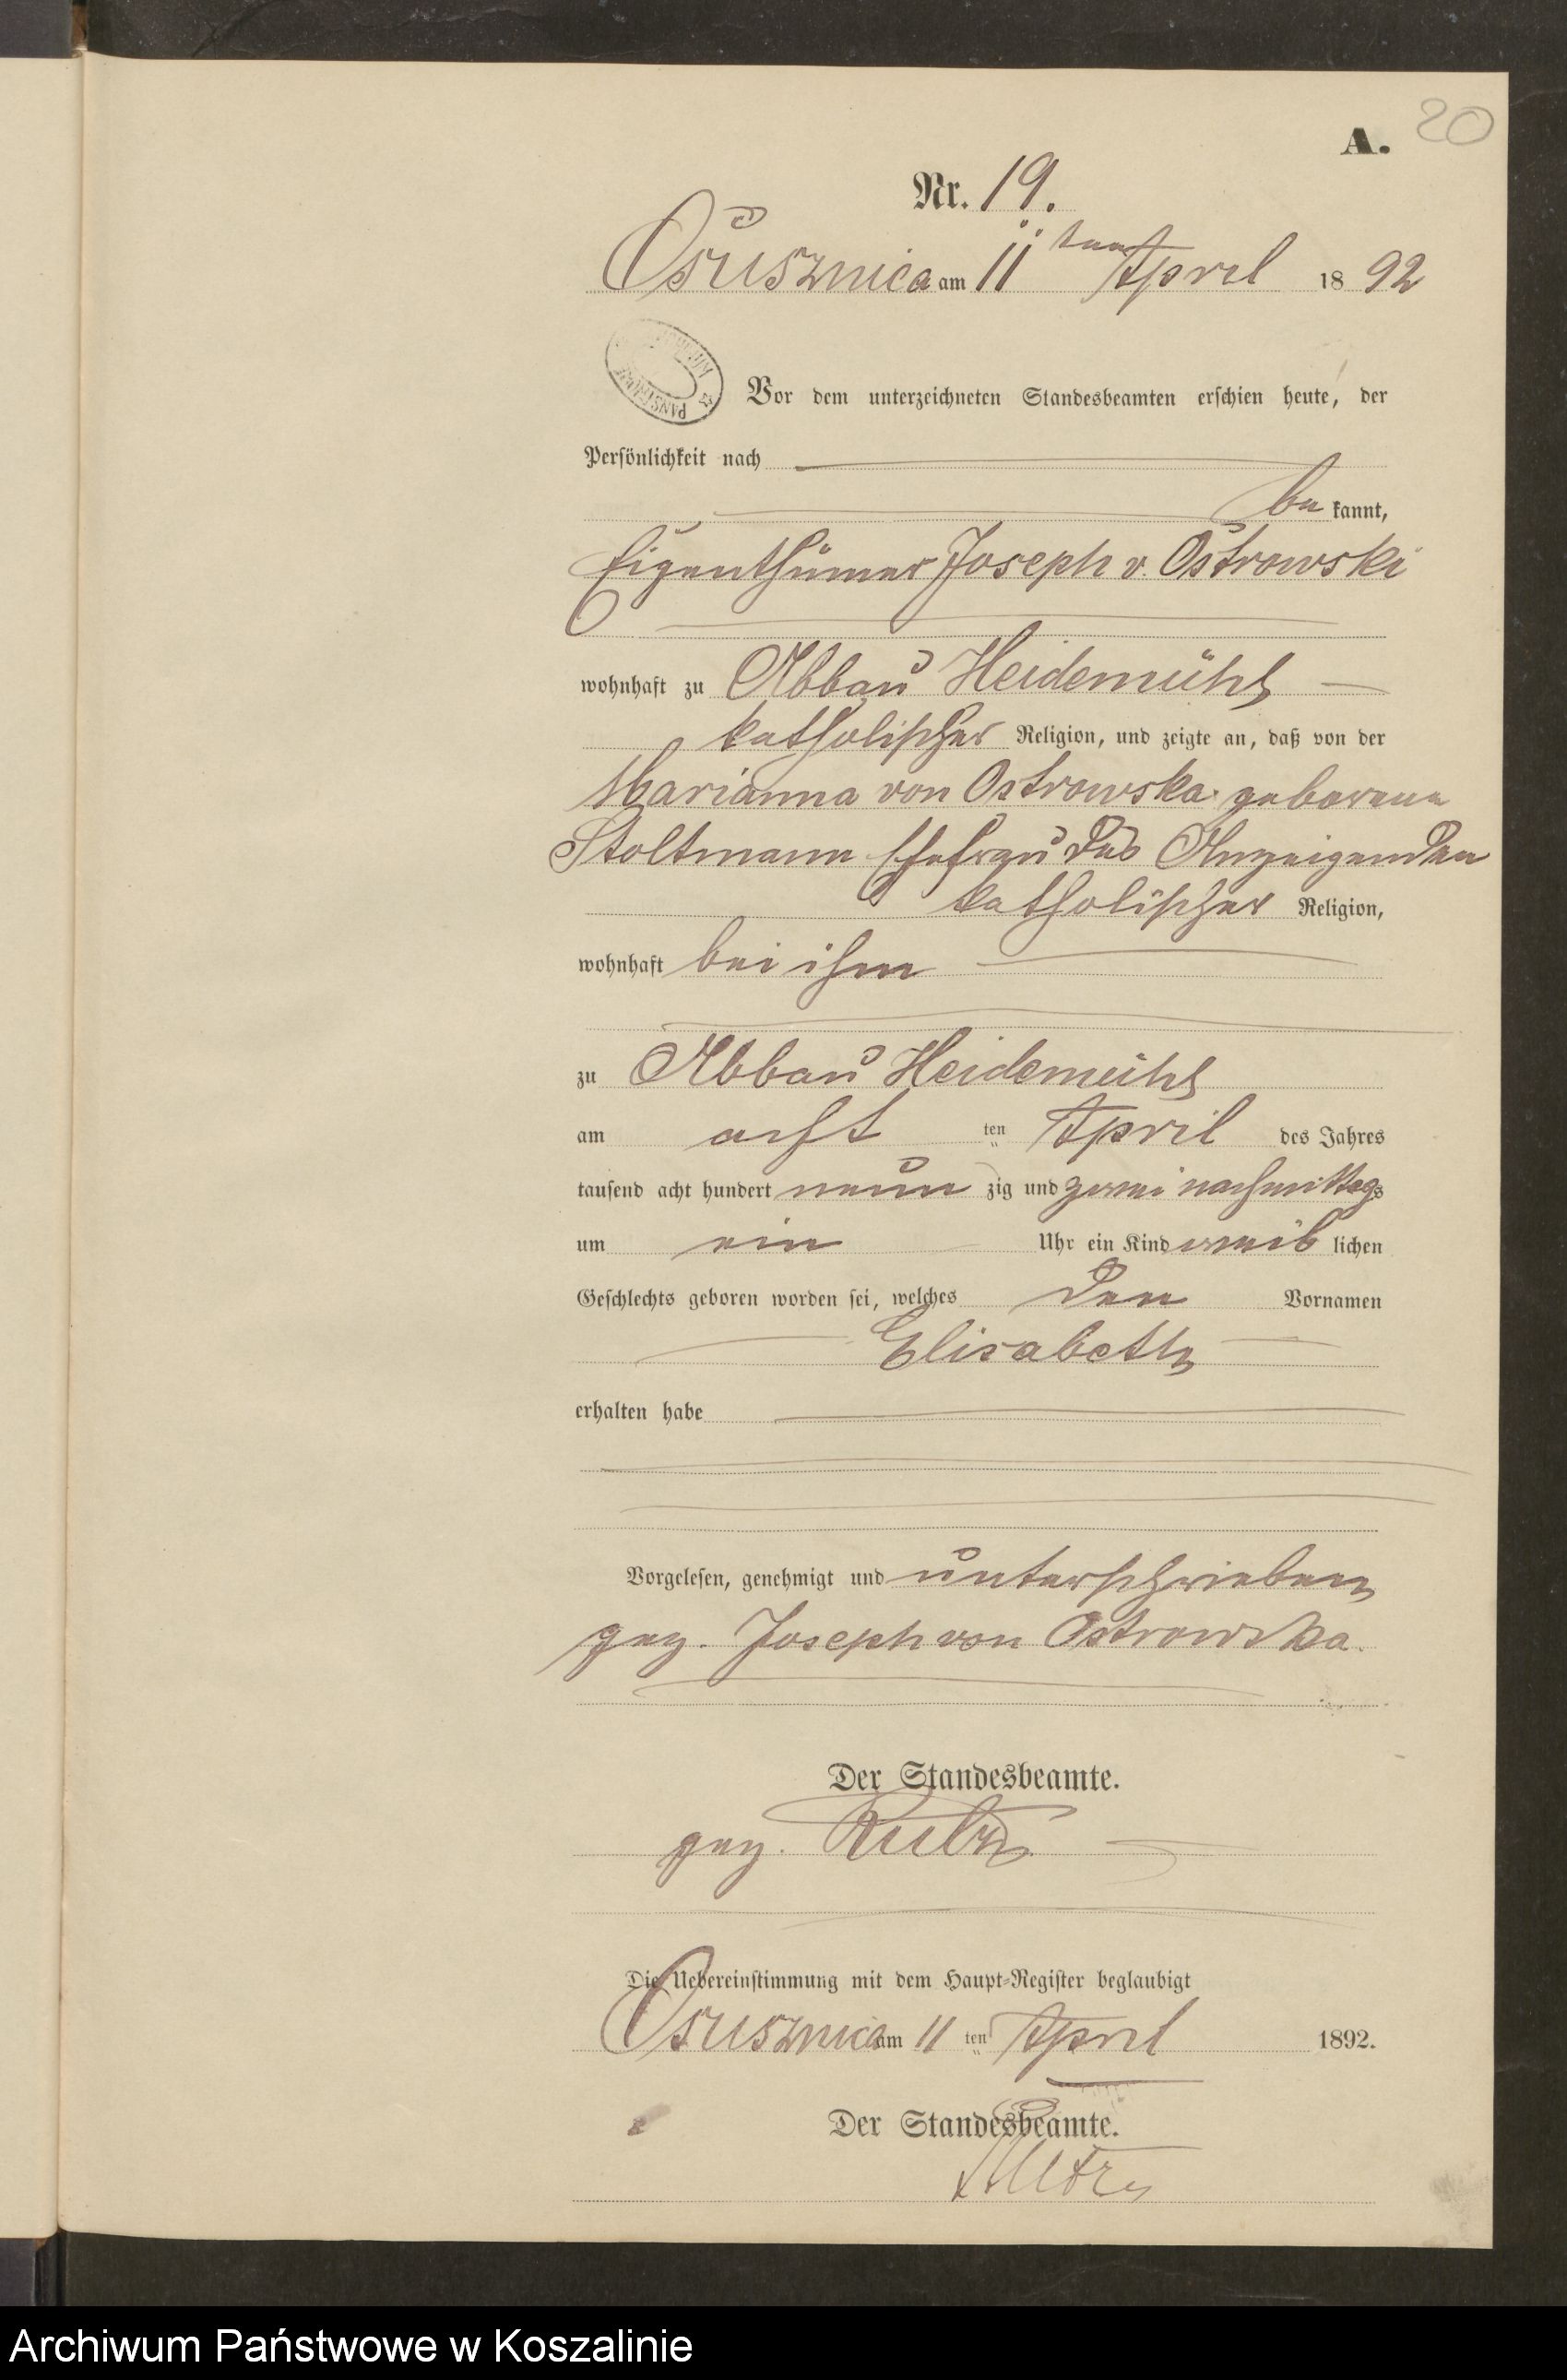 A. 20
Nr. 19.
Osusznica am 11ten April 1892
PAŃSTWOWE
Vor dem unterzeichneten Standesbeamten erschien heute, der
Persönlichkeit nach
bekannt,
Eigenthümer Joseph v. Ostrowski
wohnhaft zu Abbau Heidemühl
katholischer Religion, und zeigte an, daß von der
Marianna von Ostrowska geborene
Stoltmann Ehefrau des Anzeigenden
katholischer Religion,
wohnhaft bei ihm
zu Abbau Heidemühl
am acht ten April des Jahres
tausend acht hundert neunzig und zwei nachmittags
um ein Uhr ein Kind weiblichen
Geschlechts geboren worden sei, welches den Vornamen
Elisabeth
erhalten habe
Vorgelesen, genehmigt und unterschrieben
gez. Joseph von Ostrowska.
Der Standesbeamte.
gez.
Die Uebereinstimmung mit dem Haupt-Register beglaubigt
Osusznica am 11 ten April 1892.
Der Standesbeamte.
Archiwum Państwowe w Koszalinie